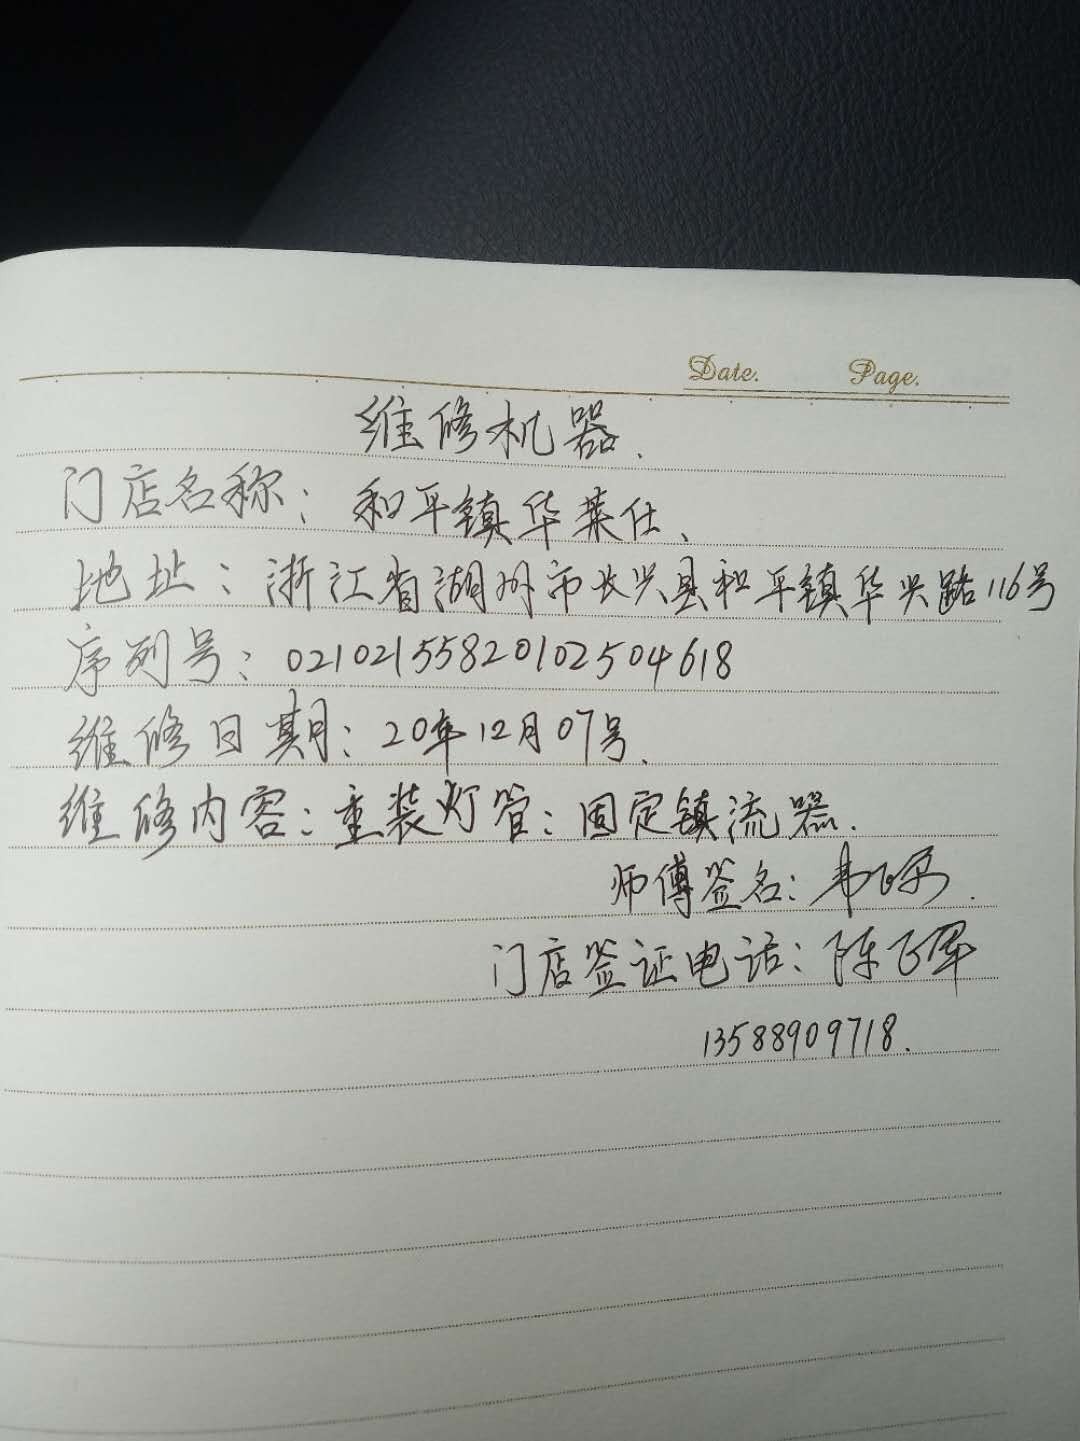 Date. Page.
维修机器.
门店名称: 和平镇华莱仕、
地址: 浙江省湖州市长兴县和平镇华兴路116号
序列号: 02102155820102504618
维修日期: 20年12月07号.
维修内容: 重装灯管: 固定镇流器.
师傅签名: 韦
门店签证电话: 陈飞军
13588909718.